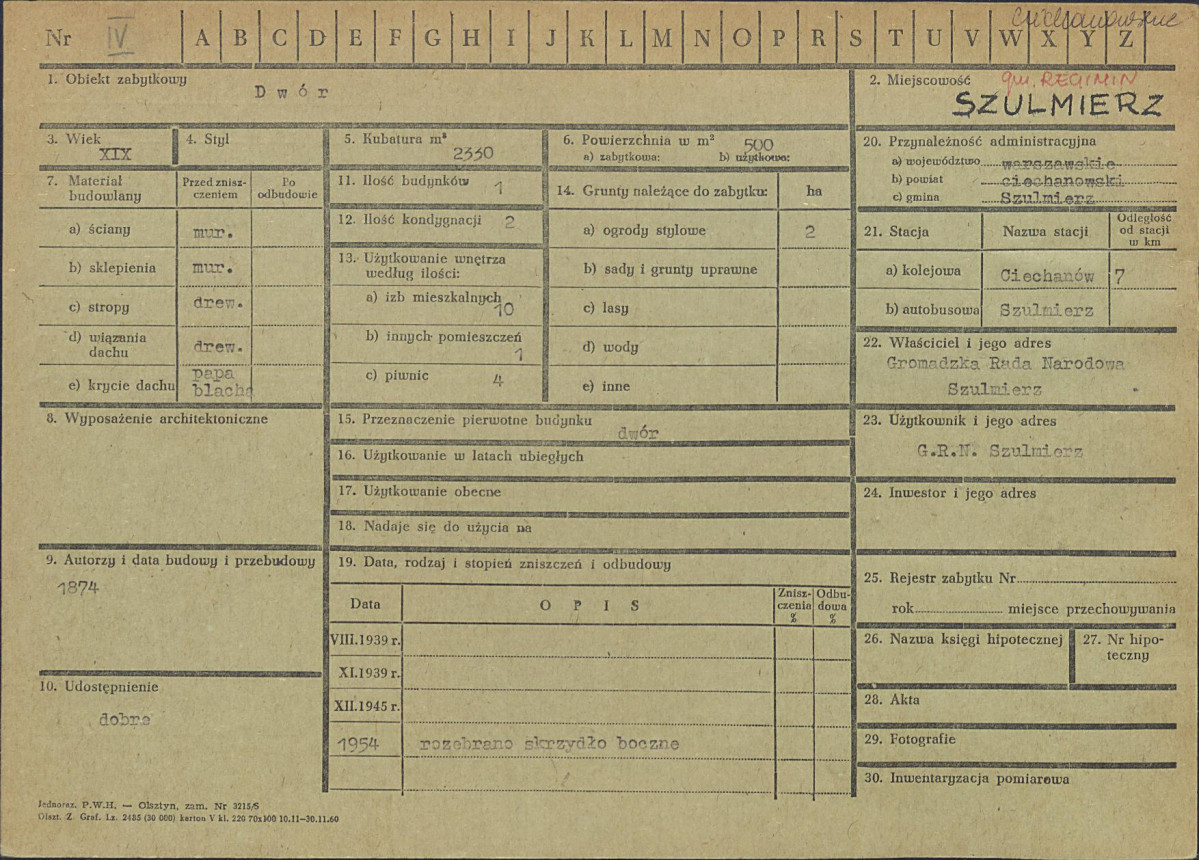 Ciechanowskie
Nr IV A B C D E F G H I J K L M N O P R S T U V W X Y Z
1. Obiekt zabytkowy
Dwór
2. Miejscowość
gm. REGIMIN
SZULMIERZ
3. Wiek
XIX
4. Styl
5. Kubatura m³
2330
6. Powierzchnia w m²
500
a) zabytkowa: b) użytkowa:
7. Materiał budowlany
Przed znisz-
czeniem
Po
odbudowie
a) ściany mur.
b) sklepienia mur.
c) stropy drew.
d) wiązania
dachu drew.
e) krycie dachu papa
blacha
11. Ilość budynków 1
12. Ilość kondygnacji 2
13. Użytkowanie wnętrza
według ilości:
a) izb mieszkalnych
10
b) innych pomieszczeń
1
c) piwnic 4
14. Grunty należące do zabytku: ha
a) ogrody stylowe 2
b) sady i grunty uprawne
c) lasy
d) wody
e) inne
20. Przynależność administracyjna
a) województwo warszawskie
b) powiat ciechanowski
c) gmina Szulmierz
21. Stacja Nazwa stacji
Odległość
od stacji
w km
a) kolejowa Ciechanów 7
b) autobusowa Szulmierz
22. Właściciel i jego adres
Gromadzka Rada Narodowa
Szulmierz
8. Wyposażenie architektoniczne
15. Przeznaczenie pierwotne budynku
dwór
16. Użytkowanie w latach ubiegłych
17. Użytkowanie obecne
18. Nadaje się do użycia na
23. Użytkownik i jego adres
G.R.N. Szulmierz
24. Inwestor i jego adres
9. Autorzy i data budowy i przebudowy
1874
19. Data, rodzaj i stopień zniszczeń i odbudowy
Data OPIS
Znisz-
czenia
%
Odbu-
dowa
%
VIII.1939 r.
XI.1939 r.
XII.1945 r.
1954 rozebrano skrzydło boczne
25. Rejestr zabytku Nr
rok miejsce przechowywania
26. Nazwa księgi hipotecznej
27. Nr hipo-
teczny
28. Akta
29. Fotografie
30. Inwentaryzacja pomiarowa
10. Udostępnienie
dobre
Jednoraz. P.W.H. — Olsztyn, zam. Nr 3215/S
Olszt. Z. Graf. Lz. 2485 (30 000) karton V kl. 220 70x100 10.11—30.11.60